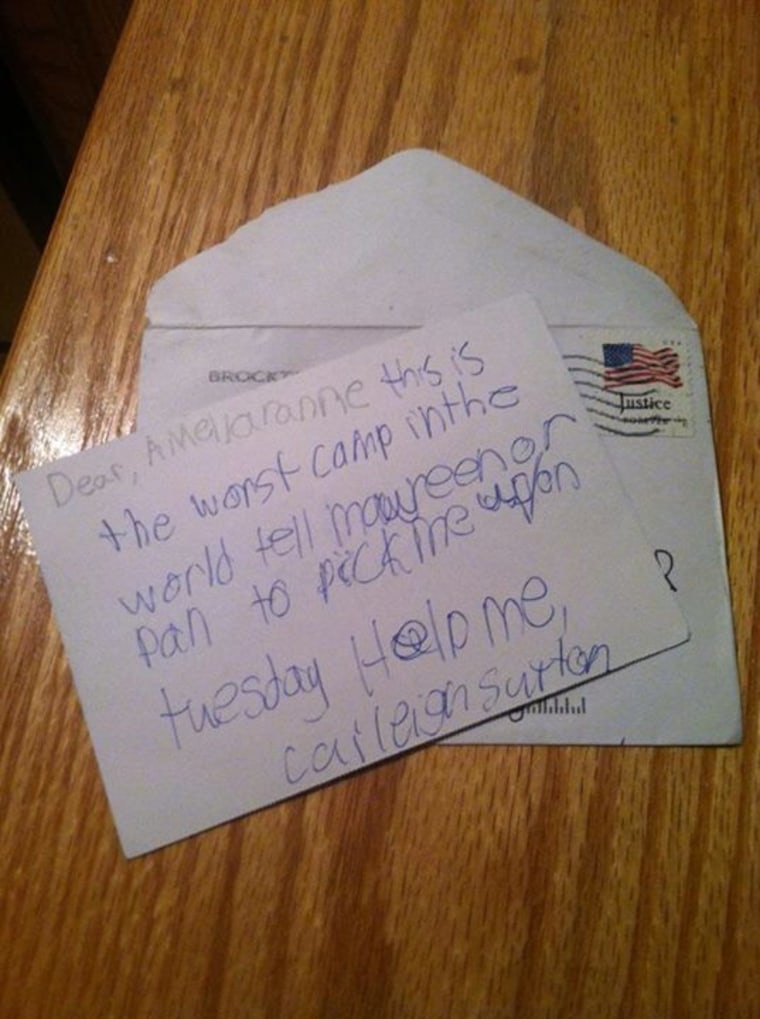 BROCKT
USA
Justice
FOREVER
Dear, Ameliaranne this is
the worst camp in the
world tell maureen or
pan to pick me up on
tuesday Help me,
caileigh sutton